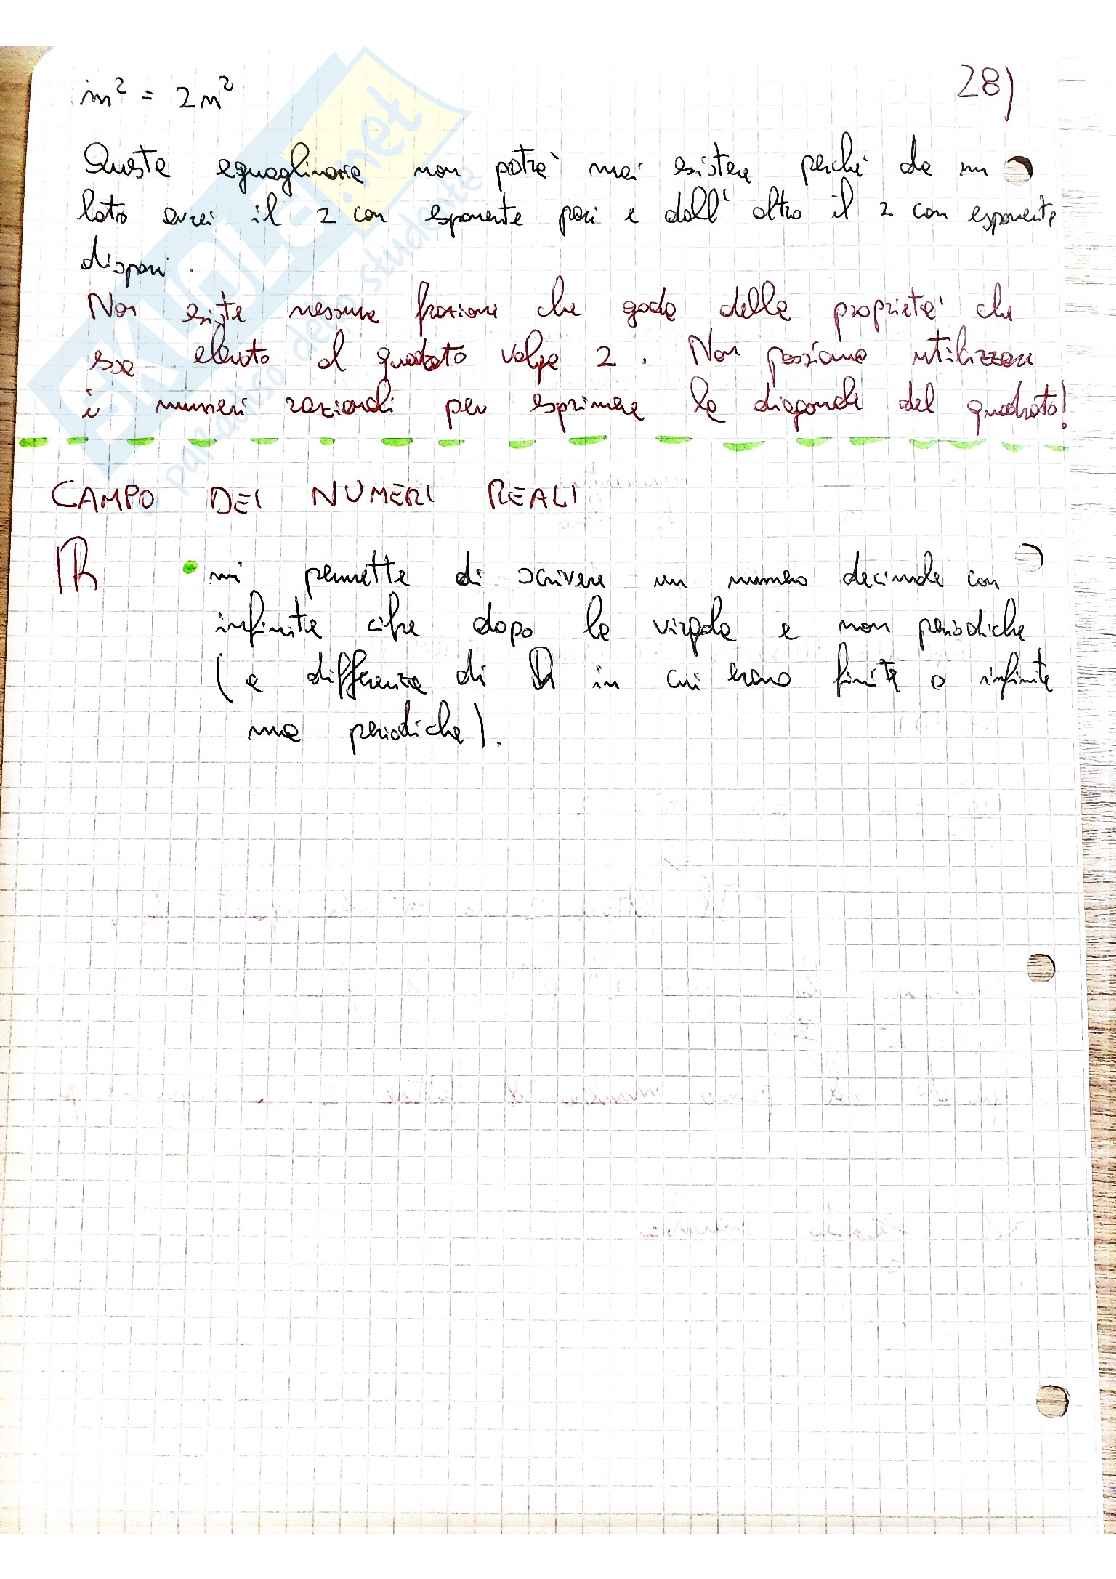 28)
m² = 2n²
Questa eguaglianza non potrà mai esistere perché da un
lato avrei il 2 con esponente pari e dall'altro il 2 con esponente
dispari.
Non esiste nessuna frazione che goda della proprietà che
essa elevata al quadrato valga 2. Non possiamo utilizzare
i numeri razionali per esprimere la diagonale del quadrato!
CAMPO DEI NUMERI REALI
ℝ • mi permette di scrivere un numero decimale con
infinite cifre dopo la virgola e non periodiche
(a differenza di ℚ in cui erano finite o infinite
ma periodiche).